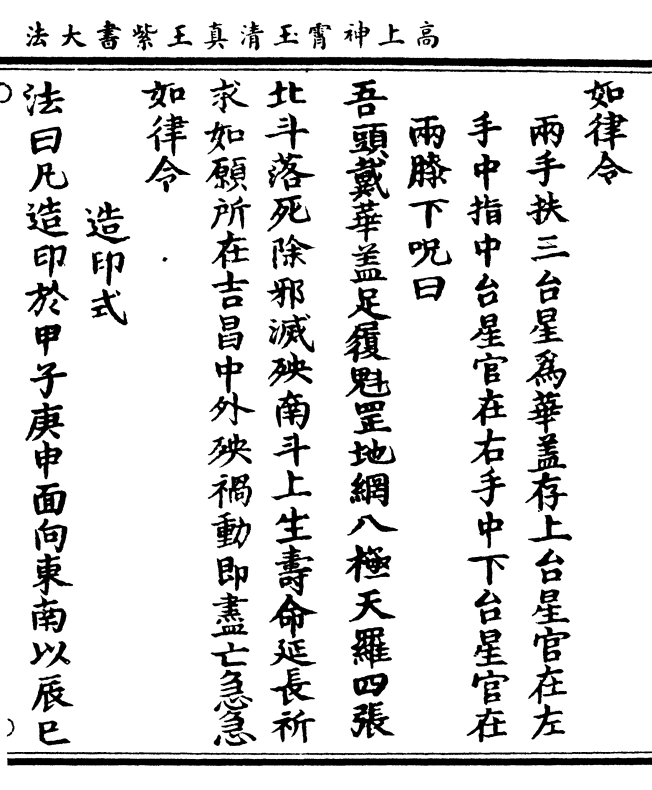 高上神霄玉清真王紫書大法
如律令
兩手扶三台星爲華蓋存上台星官在左
手中指中台星官在右手中下台星官在
兩膝下呪曰
吾頭戴華盖足履魁罡地網八極天羅四張
北斗落死除邪滅殃南斗上生壽命延長祈
求如願所在吉昌中外殃禍動即盡亡急急
如律令
造印式
法曰凡造印於甲子庚申面向東南以辰巳